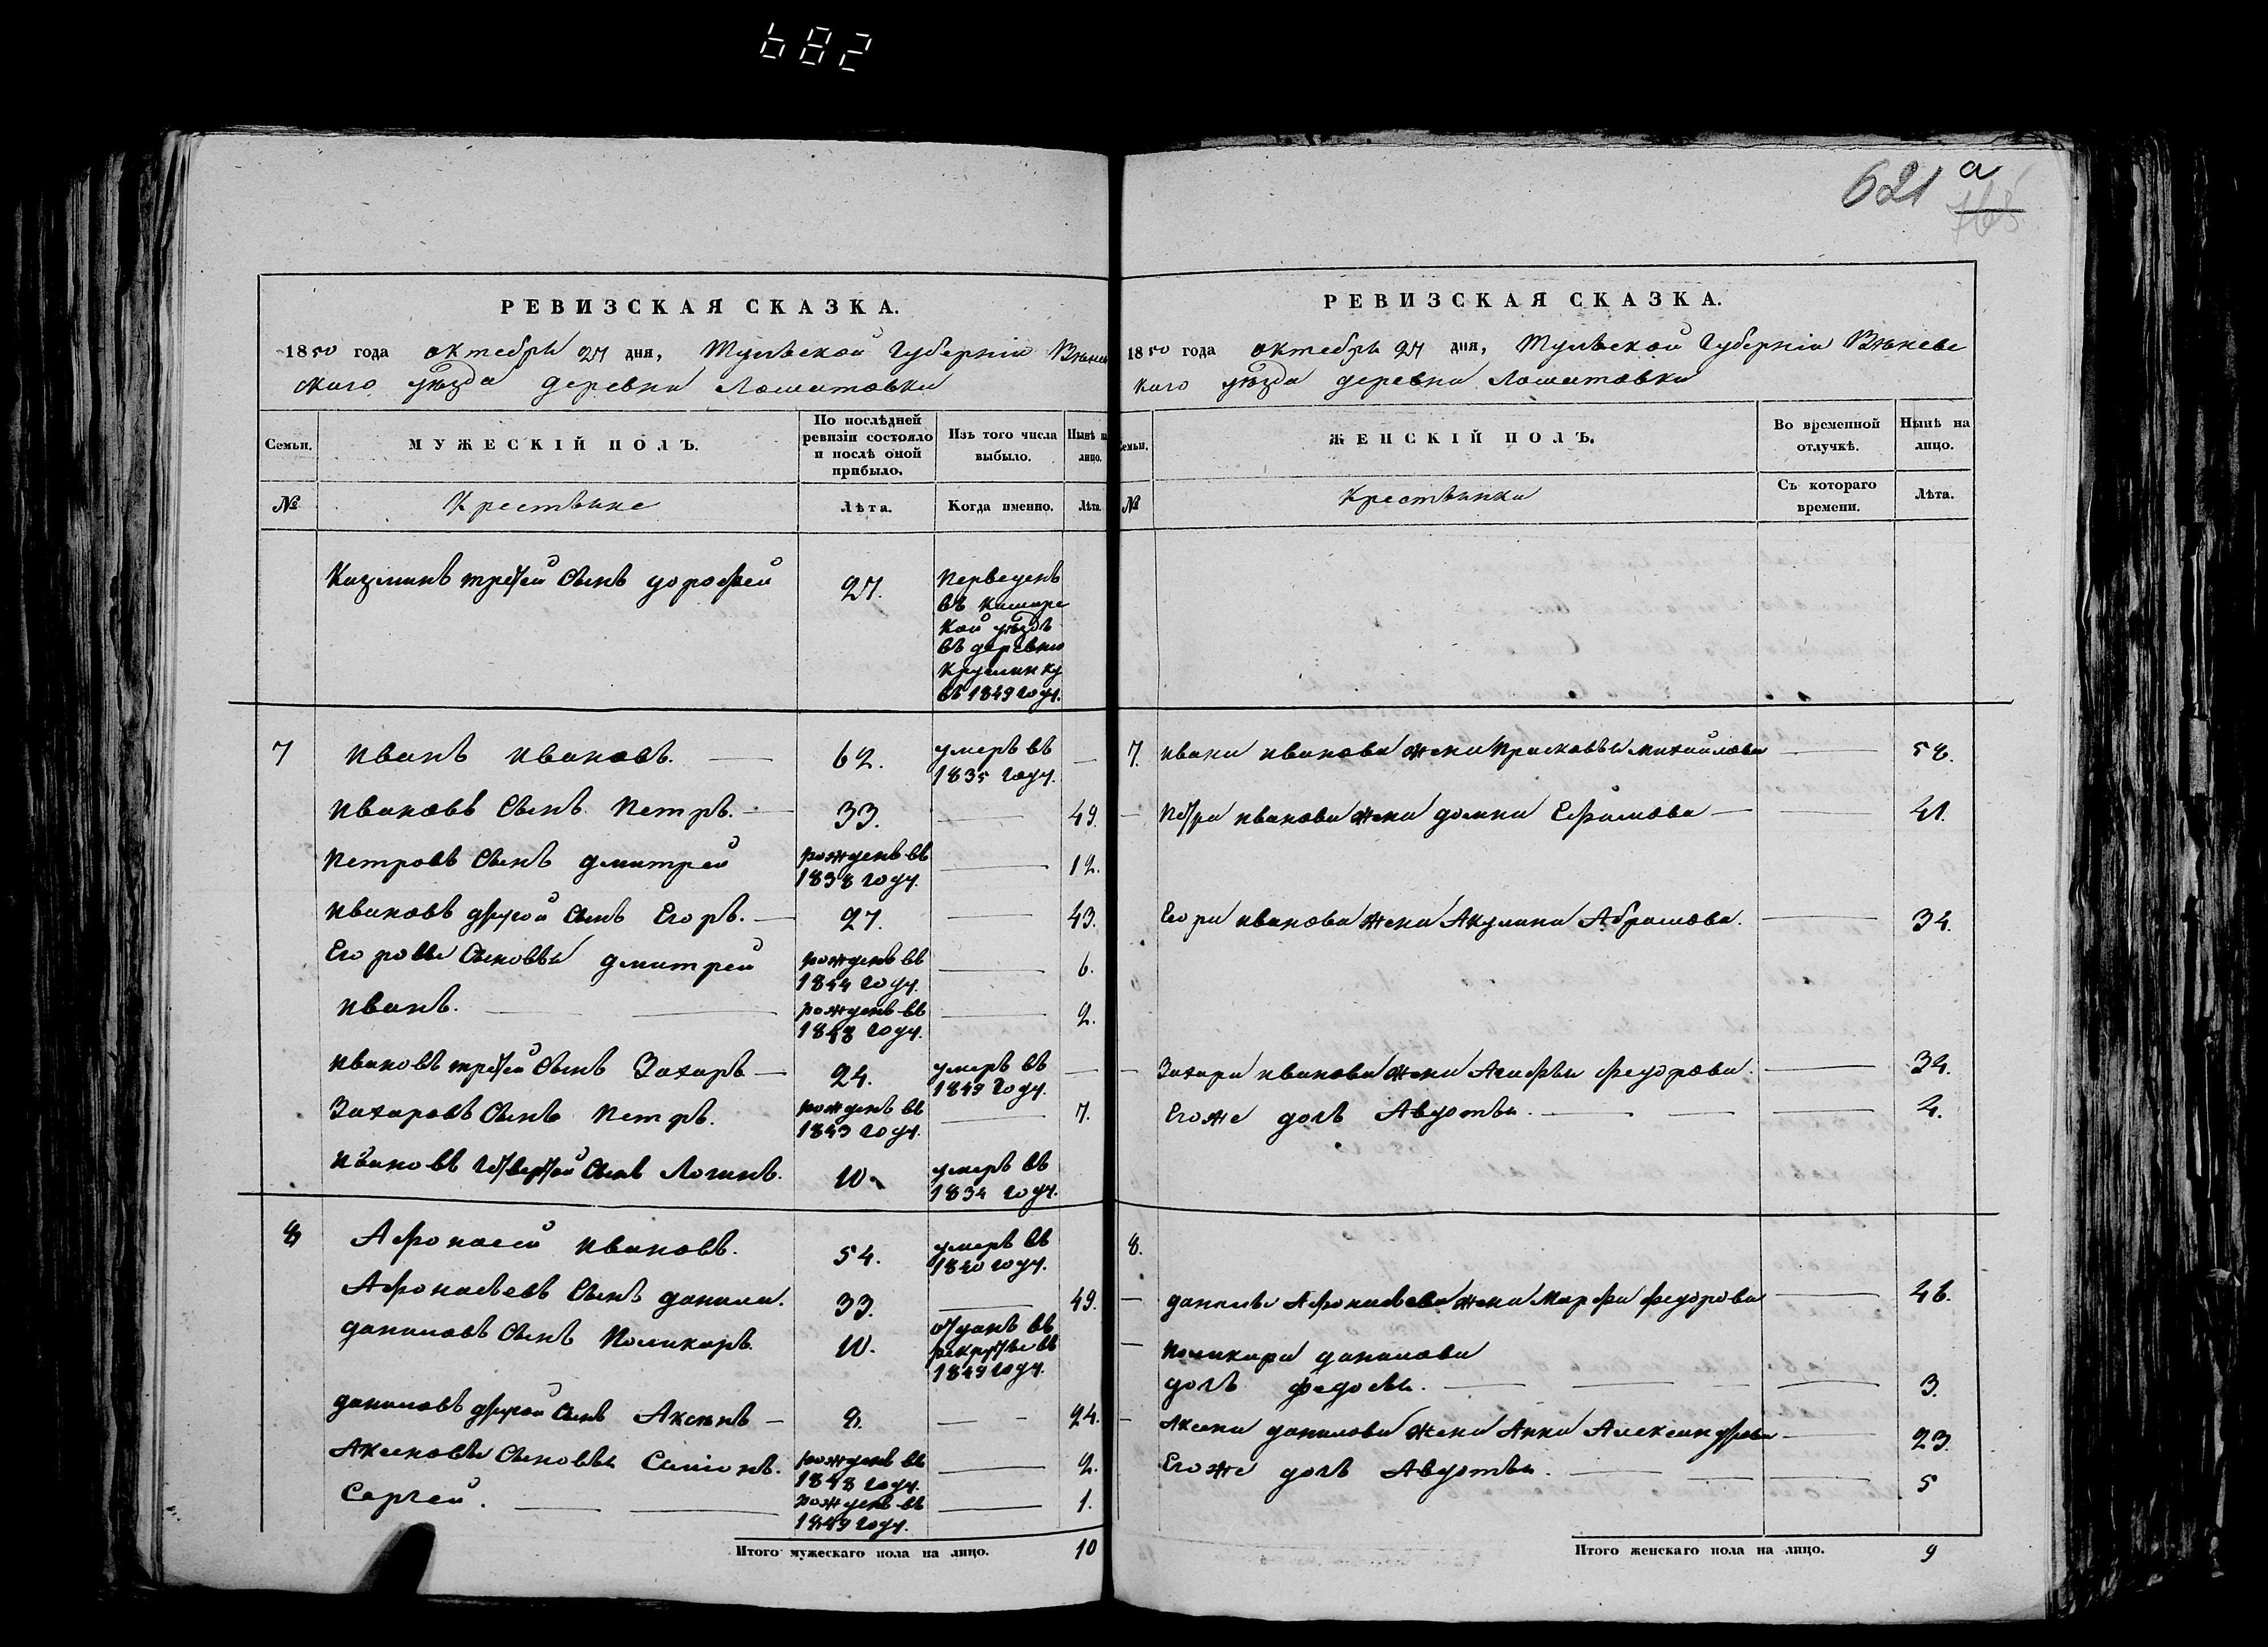 682
621 а
765
РЕВИЗСКАЯ СКАЗКА.
1850 года октебря 27 дня, Тульской Губерніи Вѣнев
ского уѣзда деревни Лошатовки
Семьи.
МУЖЕСКІЙ ПОЛЪ.
По послѣдней ревизіи состояло и послѣ оной прибыло.
Изъ того числа выбыло.
Нынѣ на лицо.
№
Крестьяне
Лѣта.
Когда именно.
Лѣта.
Казминъ третей Сынъ дорофей 27. Переведенъ
въ каширс
кой уѣздъ
въ деревню
въ 1849 году.
7 иванъ ивановъ. 62. умеръ въ 1835 году.
ивановъ Сынъ Петръ. 33. 49.
Петровъ Сынъ дмитрей рожденъ въ 1838 году. 12.
ивановъ другой Сынъ Егоръ. 27. 43.
Егоровы Сыновья дмитрей рожденъ въ 1844 году. 6.
иванъ. рожденъ въ 1848 году. 2.
ивановъ третей Сынъ Захаръ 24. умеръ въ 1849 году.
Захаровъ Сынъ Петръ. рожденъ въ 1843 году. 7.
ивановъ четвертой Сынъ Логинъ. 10. умеръ въ 1834 году.
8 Афонасей ивановъ. 54. умеръ въ 1840 году.
Афонасьевъ Сынъ данила. 33. 49.
даниловъ Сынъ Поликаръ. 10. отданъ въ рекруты въ 1849 году.
даниловъ другой Сынъ Аксенъ 8. 24.
Аксеновы Сыновья Симіонъ. рожденъ въ 1848 году. 2.
Сергей. рожденъ въ 1849 году. 1.
Итого мужескаго пола на лицо. 10
РЕВИЗСКАЯ СКАЗКА.
1850 года октебря 27 дня, Тульской Губерніи Вѣневс
каго уѣзда деревни Лошатовки
Семьи.
ЖЕНСКІЙ ПОЛЪ.
Во временной отлучкѣ.
Нынѣ на лицо.
№
Крестьянки
Съ котораго времени.
Лѣта.
7. ивана иванова жена Прасковья михайлова 58.
Петра иванова жена домна Ефимова 41.
Егора иванова жена Акулина Абрамова. 34.
Захара иванова жена Агафья федорова. 34.
Егоже дочь Авдотья. 4.
8.
данилы Афонасьева жена Марфа федорова 46.
Поликара данилова
дочь федосья. 3.
Аксена данилова жена Анна Александрова 23.
Егоже дочь Авдотья. 5
Итого женскаго пола на лицо. 9